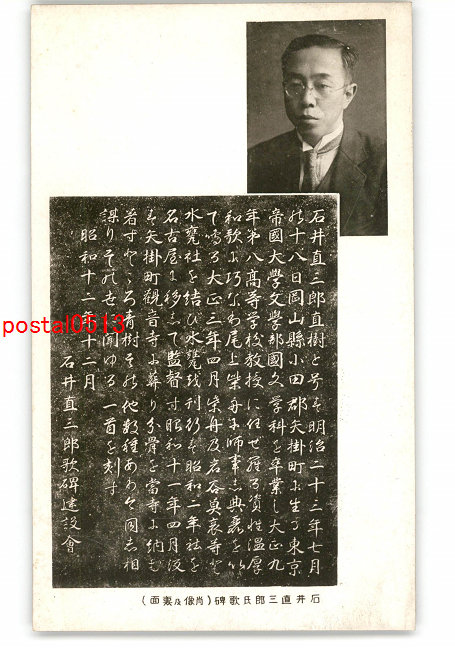 石井直三郎直樹と号す明治二十三年七月
廿十八日岡山縣小田郡矢掛町に生る東京
帝國大學文學部國文學科を卒業し大正九
年第八高等学校教授に任せ羅る資性温厚
和歌に巧なり尾上柴舟に師事し典麗を以
て鳴る大正三年四月柴舟及岩谷莫哀等と
水甕社を結び水甕を刊行す昭和一年社を
名古屋に移して監督す昭和十一年四月没
す矢掛町観音寺に葬り分骨を當寺に納む
著すところ青樹その他数種あり今同志相
謀りその世に聞ゆる一首を刻す
昭和十二年十二月
石井直三郎歌碑建設會
石井直三郎氏歌碑(肖像及裏面)
postal0513